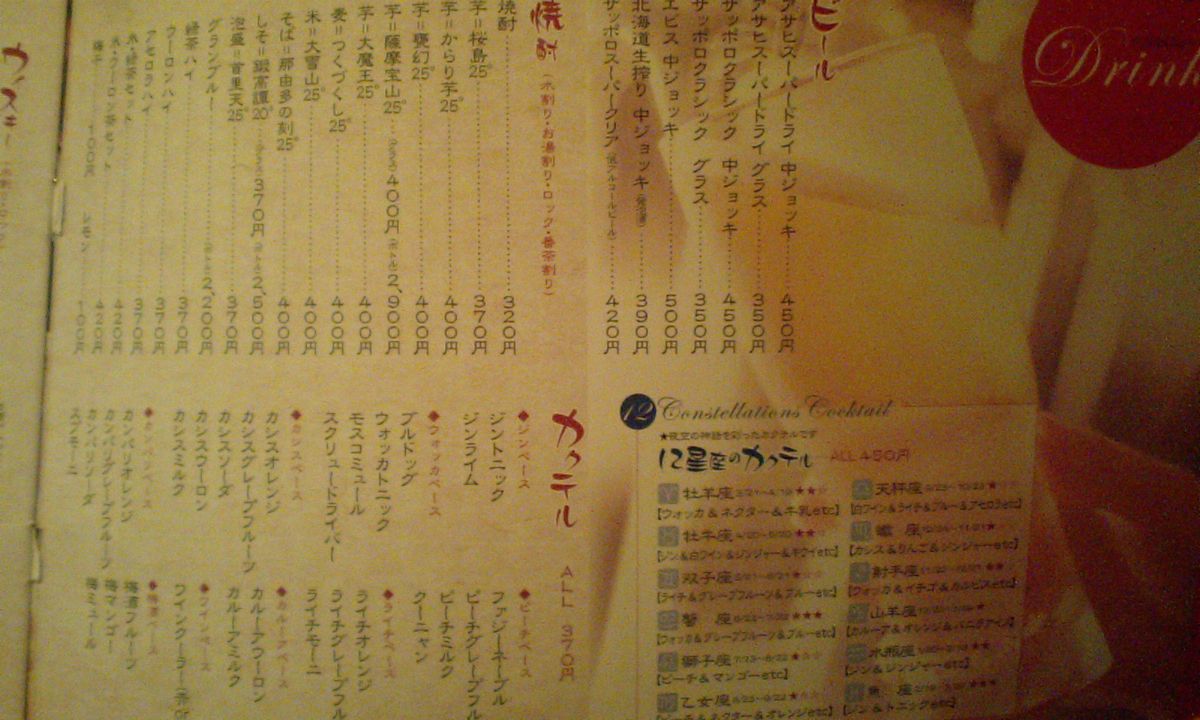 Drink
ビール
アサヒスーパードライ 中ジョッキ 450円
アサヒスーパードライ グラス 350円
サッポロクラシック 中ジョッキ 450円
サッポロクラシック グラス 350円
エビス 中ジョッキ 500円
北海道生搾り 中ジョッキ 390円
サッポロスーパークリア 420円
焼酎(水割り・お湯割り・ロック・番茶割り)
焼酎 320円
芋=桜島25° 370円
芋=からり芋25° 400円
芋=甕幻25° 400円
芋=薩摩宝山25° 400円 (ボトル)2,900円
芋=大魔王25° 400円
麦=つくづくし25° 400円
米=大雪山25° 400円
そば=那由多の刻25° 400円
しそ=鍛高譚20° 370円 (ボトル)2,500円
泡盛=首里天25° 370円
グランブルー (ボトル)2,200円
緑茶ハイ 370円
ウーロンハイ 370円
アセロラハイ 370円
氷・緑茶セット 420円
氷・ウーロン茶セット 420円
梅干 100円 レモン 100円
ウイスキー
カクテル ALL 370円
◆ジンベース
ジントニック
ジンライム
◆ウォッカベース
ブルドッグ
ウォッカトニック
モスコミュール
スクリュードライバー
◆カシスベース
カシスオレンジ
カシスグレープフルーツ
カシスソーダ
カシスウーロン
カシスミルク
◆カンパリベース
カンパリオレンジ
カンパリグレープフルーツ
カンパリソーダ
スプモーニ
◆ピーチベース
ファジーネーブル
ピーチグレープフル
ピーチミルク
クーニャン
◆ライチベース
ライチオレンジ
ライチグレープフル
ライチモーニ
◆カルーアベース
カルーアウーロン
カルーアミルク
◆ワインベース
ワインクーラー
◆梅酒ベース
梅酒フルーツ
梅マンゴー
梅ミュール
12 Constellations Cocktail
★夜空の神話を彩ったカクテルです
12星座のカクテル ALL 450円
牡羊座
【ウォッカ&ネクター&牛乳etc】
牡牛座
【ジン&白ワイン&ジンジャー&キウイetc】
双子座
【ライチ&グレープフルーツ&ブルーetc】
蟹座
【ウォッカ&グレープフルーツ&ブルーetc】
獅子座 7/23~8/22
【ピーチ&マンゴーetc】
乙女座 8/23~9/22
【ピーチ&ネクター&オレンジetc】
天秤座 9/23~10/23
【白ワイン&ライチ&ブルー&アセロラetc】
蠍座
【カシス&りんご&ジンジャーetc】
射手座
【ウォッカ&イチゴ&カルピスetc】
山羊座
【カルーア&オレンジ&バニラアイス】
水瓶座
【ジン&ジンジャーetc】
魚座
【ジン&トニックetc】